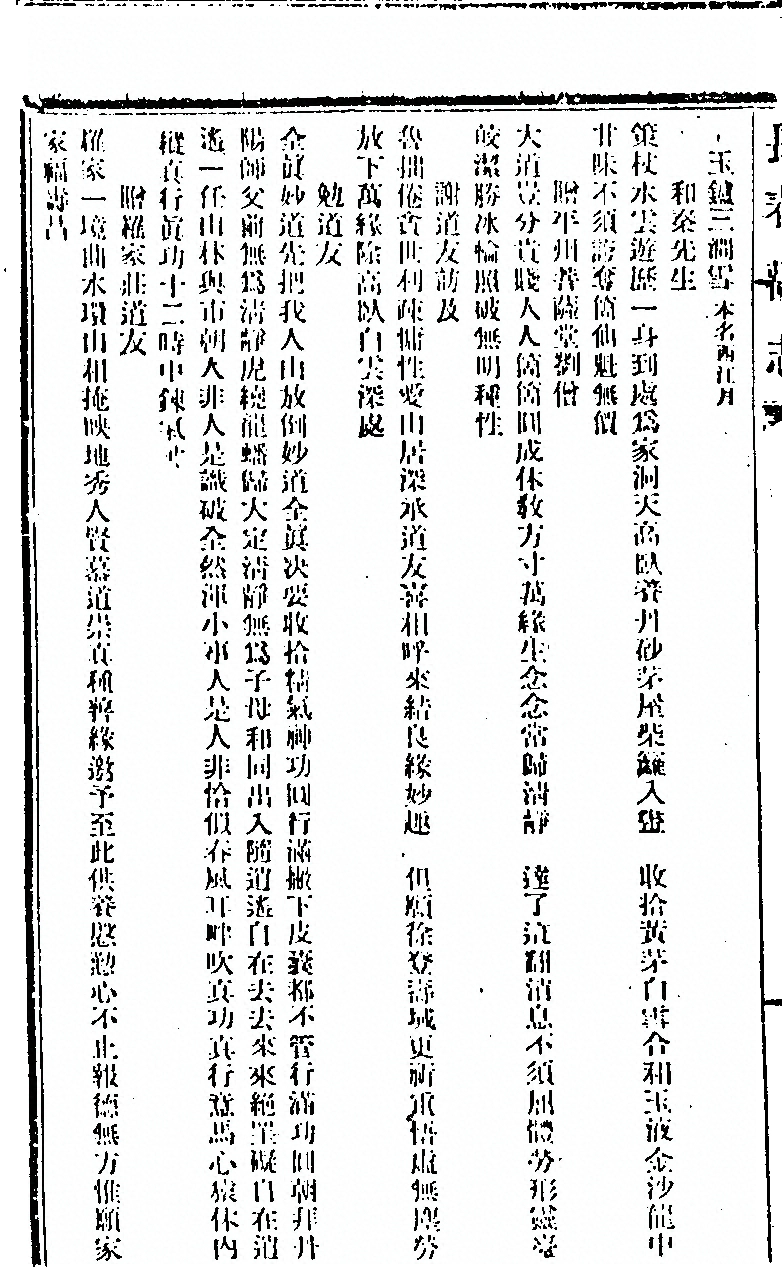 玉鑪三澗雪 本名西江月
和秦先生
策杖水雲遊歷一身到處爲家洞天高臥養丹砂茅屋柴籬入畫 收拾黃芽白雪合和玉液金沙龍中
甘味不須誇奪箇仙魁無價
贈平州菩薩堂劉僧
大道豈分貴賤人人箇箇圓成休敎方寸萬緣生念念常歸淸靜 達了這翻消息不須屈體勞形靈臺
皎潔勝冰輪照破無明種性
謝道友訪及
魯拙倦貪世利疎慵性愛山居深承道友喜相呼來結良緣妙趣 但願徐登壽域更祈重悟虛無塵勞
放下萬緣除高臥白雲深處
勉道友
全眞妙道先把我人山放倒妙道全眞決要收拾精氣神功圓行滿撇下皮囊都不管行滿功圓朝拜丹
陽師父前無爲淸靜虎繞龍蟠歸大定淸靜無爲子母和同出入隨逍遙自在去去來來絕罣礙自在逍
遙一任山林與市朝人非人是識破全然渾小事人是人非恰似春風耳畔吹真功真行意馬心猿休內
縱真行眞功十二時中鍊氣
贈羅家莊道友
羅家一境曲水環山相掩映地秀人賢慕道崇真種善緣邀予至此供養慇懃心不止報德無方惟願家
家福壽昌